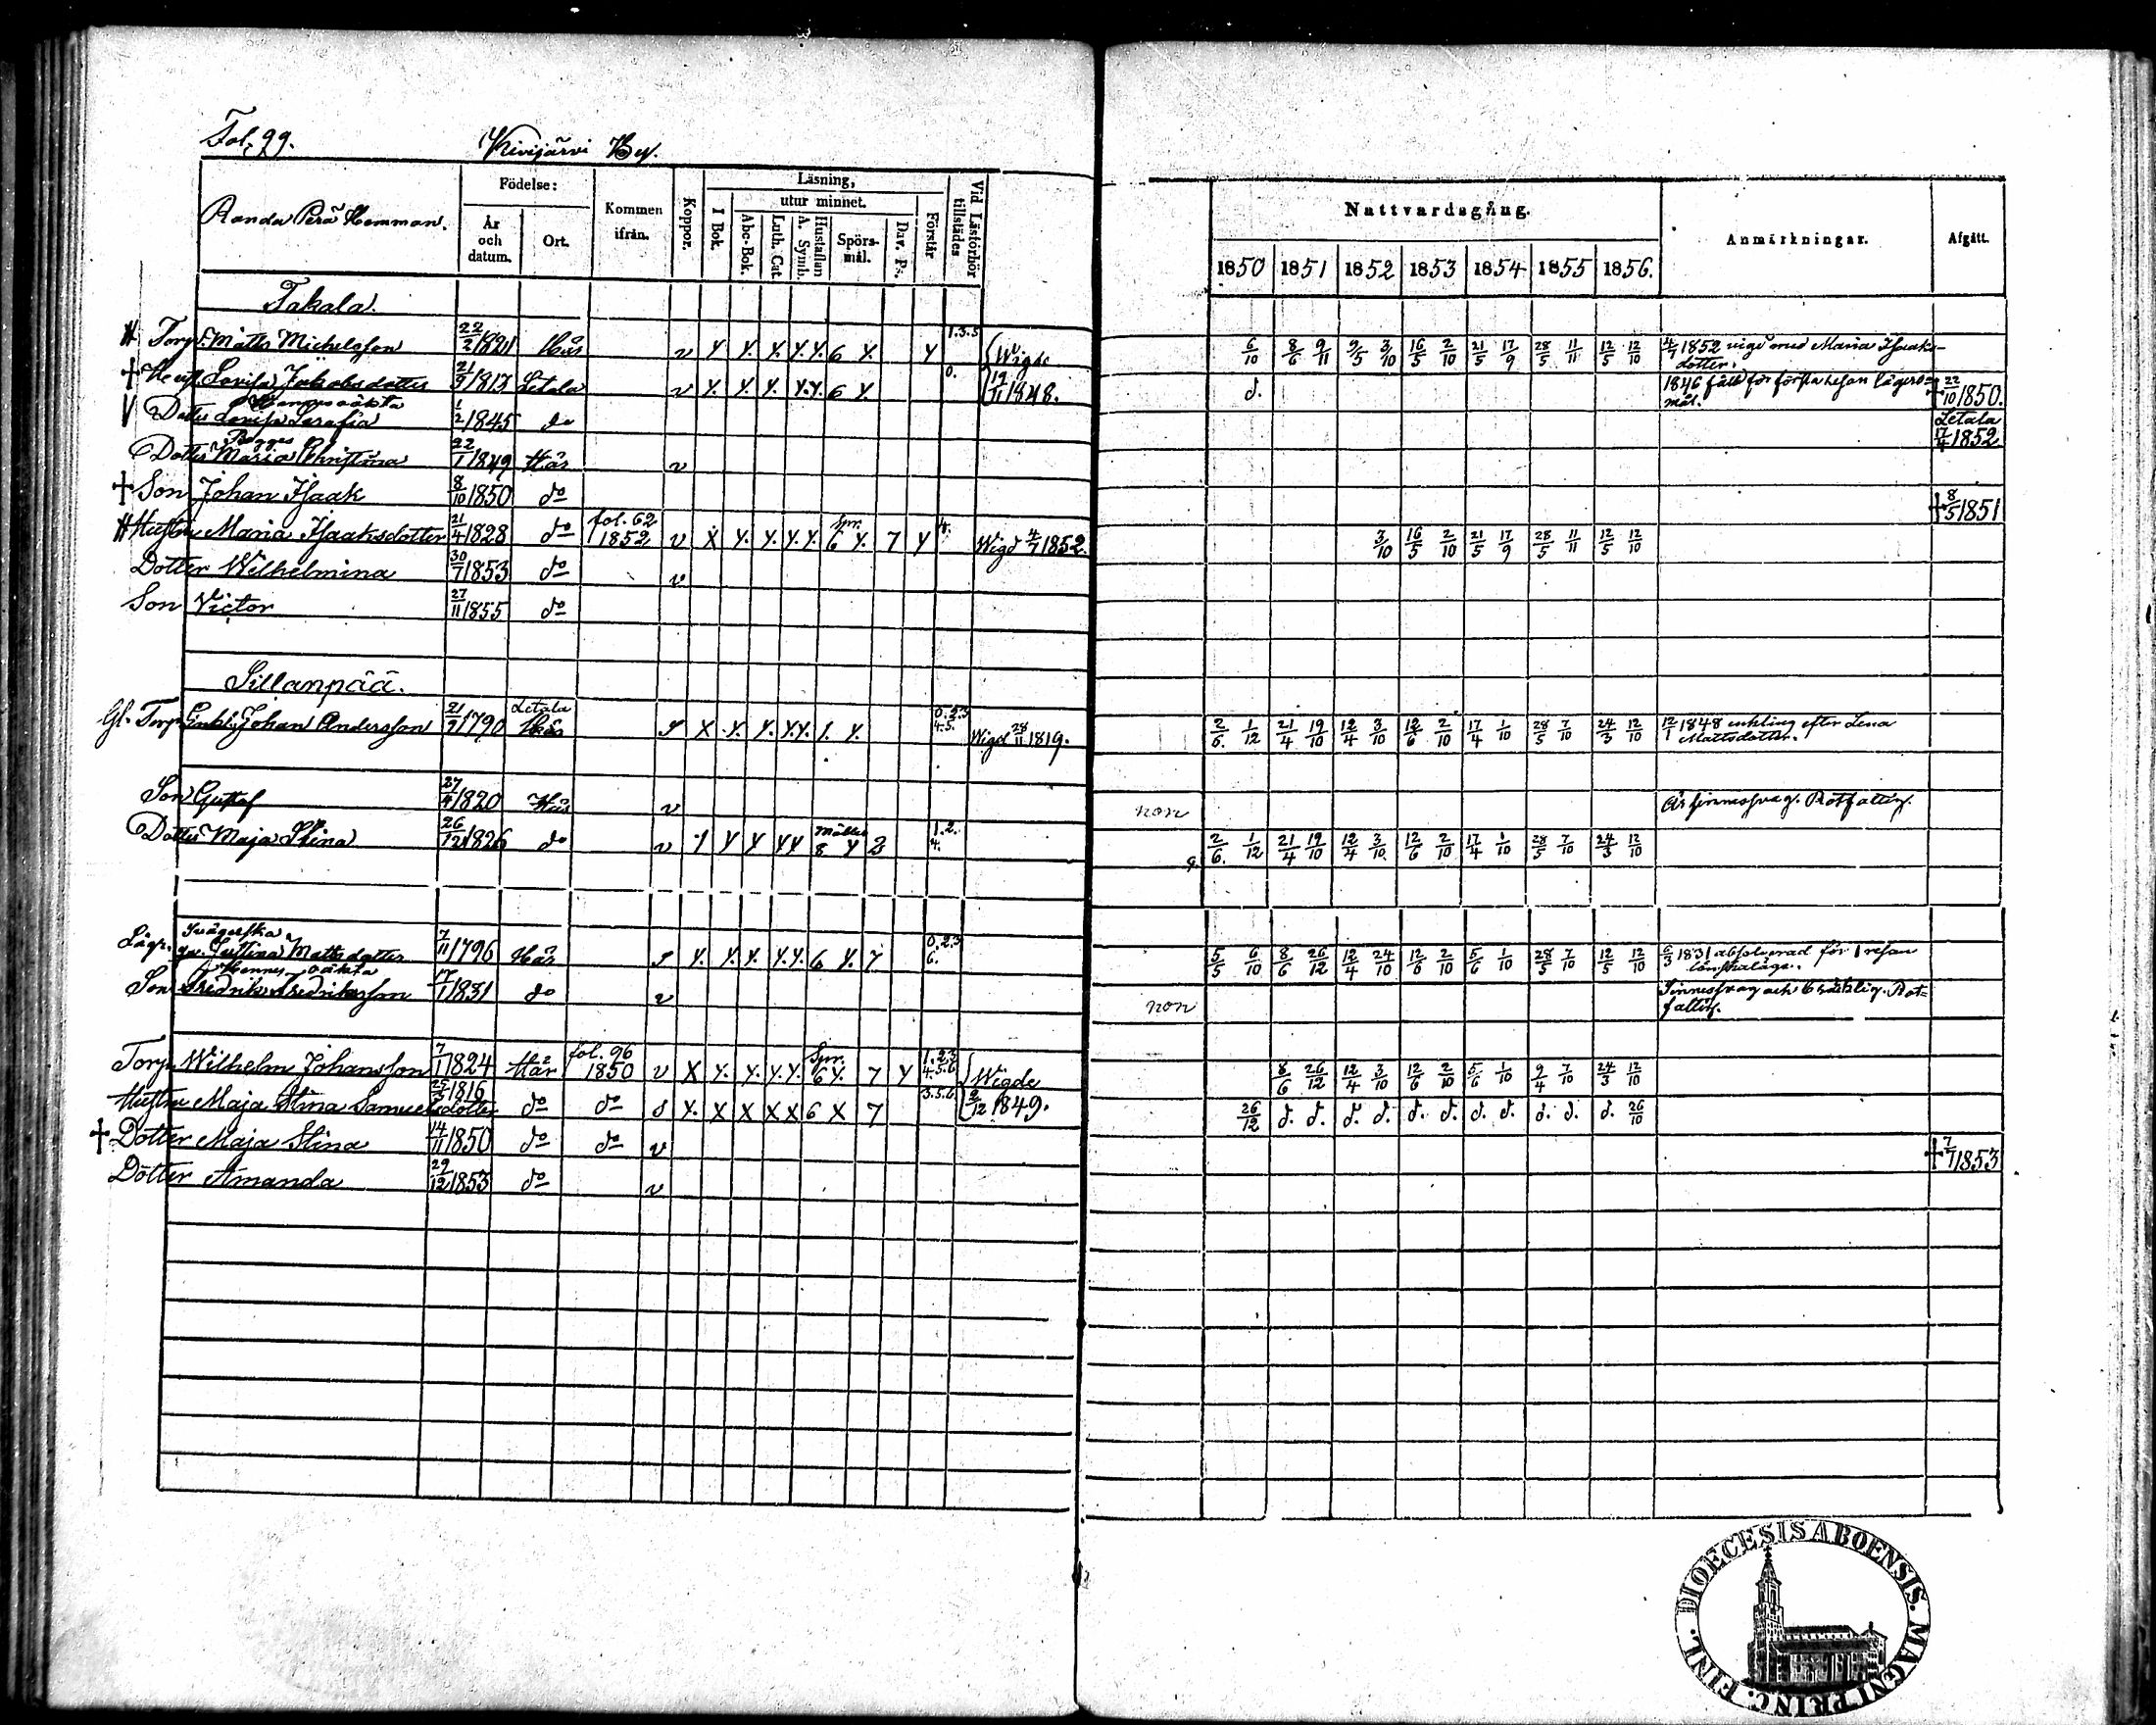 Fol. 99. Kivijärvi By.
Randa Perä Hemman. Födelse: År och datum. Ort. Kommen ifrån. Koppor. Läsning, I Bok. utur minnet. Abc-Bok. Luth. Cat. A. Symb. Hustaflan Spörs-mål. Dav. Ps. Förstår Vid Läsförhör tillstädes
Nattvardsgång. 1850 1851 1852 1853 1854 1855 1856. Anmärkningar. Afgått.
Takala.
Torp. Matts Michelsson 22/2 1821 Här v Y Y. Y. Y. Y. 6 Y. Y 1.3.5 Wigde 6/10 8/6 9/11 9/5 3/10 16/5 2/10 21/5 17/9 28/5 11/11 12/5 12/10 4/7 1852 vigd med Maria Isaaks-
dotter.
† Hust. Lovisa Jakobsdotter 21/3 1813 Letala v Y. Y. Y. Y. Y. 6 Y. 0. 19/11 1848. d. 1846 fält för första resan lägers-
mål. † 22/10 1850.
Hennes oäkta
Dotter Lovisa Serafia 1/2 1845 do Letala 17/4 1852
Begges
Dotter Maria Christina 22/1 1849 Här v
† Son Johan Isaak 8/10 1850 do † 8/5 1851
Hustru Maria Isaaksdotter 21/4 1828 do fol. 62 1852 v X Y. Y. Y. Y. Spr. 6 Y. 7 Y Wigd 4/7 1852. 3/10 16/5 2/10 21/5 17/9 28/5 11/11 12/5 12/10
Dotter Wilhelmina 30/7 1853 do v
Son Victor 27/11 1855 do
Sillanpää.
Gl. Torp. Enkl. Johan Andersson 21/9 1790 Letala Här S X Y. Y. Y. Y. 1. Y. 0.2.3 4.5. Wigd 28/11 1819. 2/6. 1/12 21/4 19/10 12/4 3/10 12/6 2/10 17/4 1/10 28/5 7/10 24/3 12/10 12/1 1848 enkling efter Lena
Mattsdotter.
Son Gustaf 27/4 1820 Här v non Är sinnessvag. Rotfattig.
Dotter Maja Stina 26/12 1826 do v Y Y Y Y Y 8 Y 3 1.2. 4. 2/6. 1/12 21/4 19/10 12/4 3/10 12/6 2/10 17/4 1/10 28/5 7/10 24/3 12/10
Svägerska
Justina Mattsdotter 7/11 1796 Här S Y. Y. Y. Y. Y. 6 Y. 7 0.2.3 6. 5/5 6/10 8/6 26/12 12/4 24/10 12/6 2/10 5/6 1/10 28/5 7/10 12/5 12/10 1831 absolverad för 1 resan
lönskaläge.
Hennes oäkta
Son Fredrik Fredriksson 17/1 1831 do v non Sinnessvag och bräcklig. Rot-
fattig.
Torp. Wilhelm Johansson 7/1 1824 Här fol. 96 1850 v X Y. Y. Y. Y. Spr. 6 Y. 7 Y 1.2.3 4.5.6 Wigde 8/6 26/12 12/4 3/10 12/6 2/10 5/6 1/10 9/4 7/10 24/3 12/10
Hustru Maja Stina Samuelsdotter 25/5 1816 do do S Y. X X X X 6 X 7 3.5.6. 2/12 1849. 26/12 d. d. d. d. d. d. d. d. d. d. d. 26/10
† Dotter Maja Stina 14/11 1850 do do v † 7/7 1853
Dotter Amanda 29/12 1853 do v
DIOECESIS ABOENSIS. MAGNI PRINC. FINL.